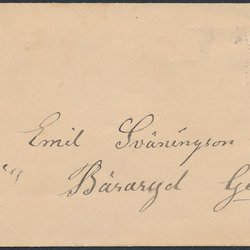 Emil Sväningson
Bäraryd Ge